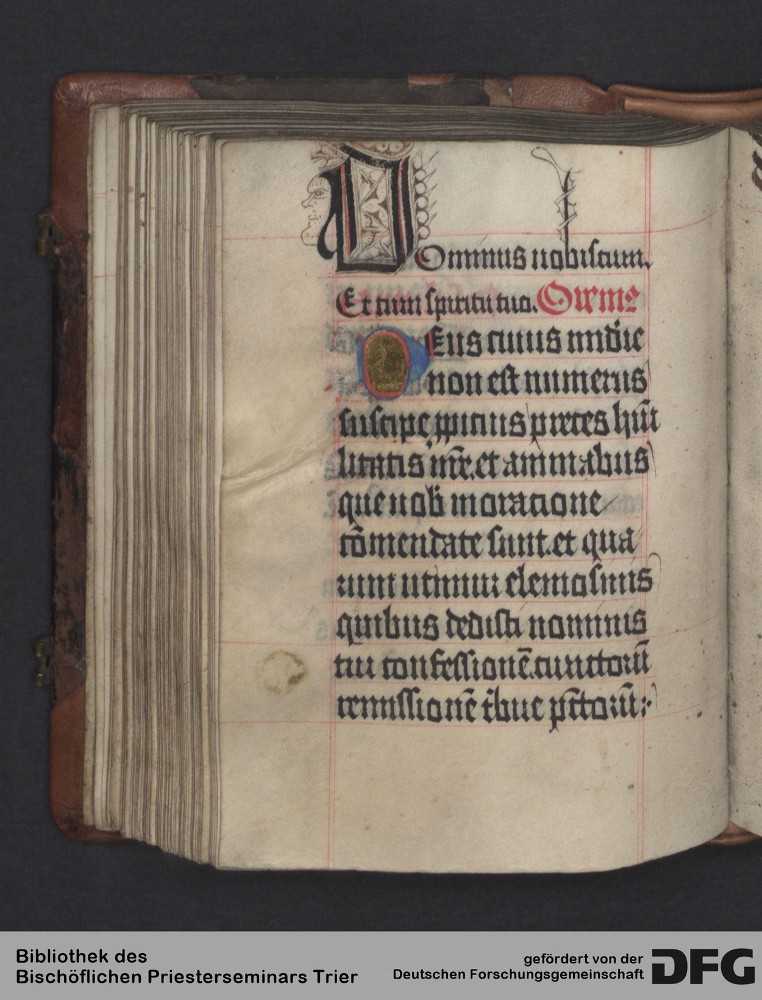 Dominus uobiscum.
Et cum spiritu tuo. Orem9
DEus cuius mi&#x0303;die
non est numerus
suscipe ppicius preces hu&#x0303;i
litatis nr&#x0303;e. et animabus
que nob moracione
co&#x0303;mendate sunt. et qua
rum utimur elemosinis
quibus dedisti nominis
tui confessione&#x0303;. cunctoru&#x0303;
remissione&#x0303; t&#x0303;bue pc&#x0303;toru&#x0303;:
Bibliothek des
Bischöflichen Priesterseminars Trier
gefördert von der
Deutschen Forschungsgemeinschaft
DFG